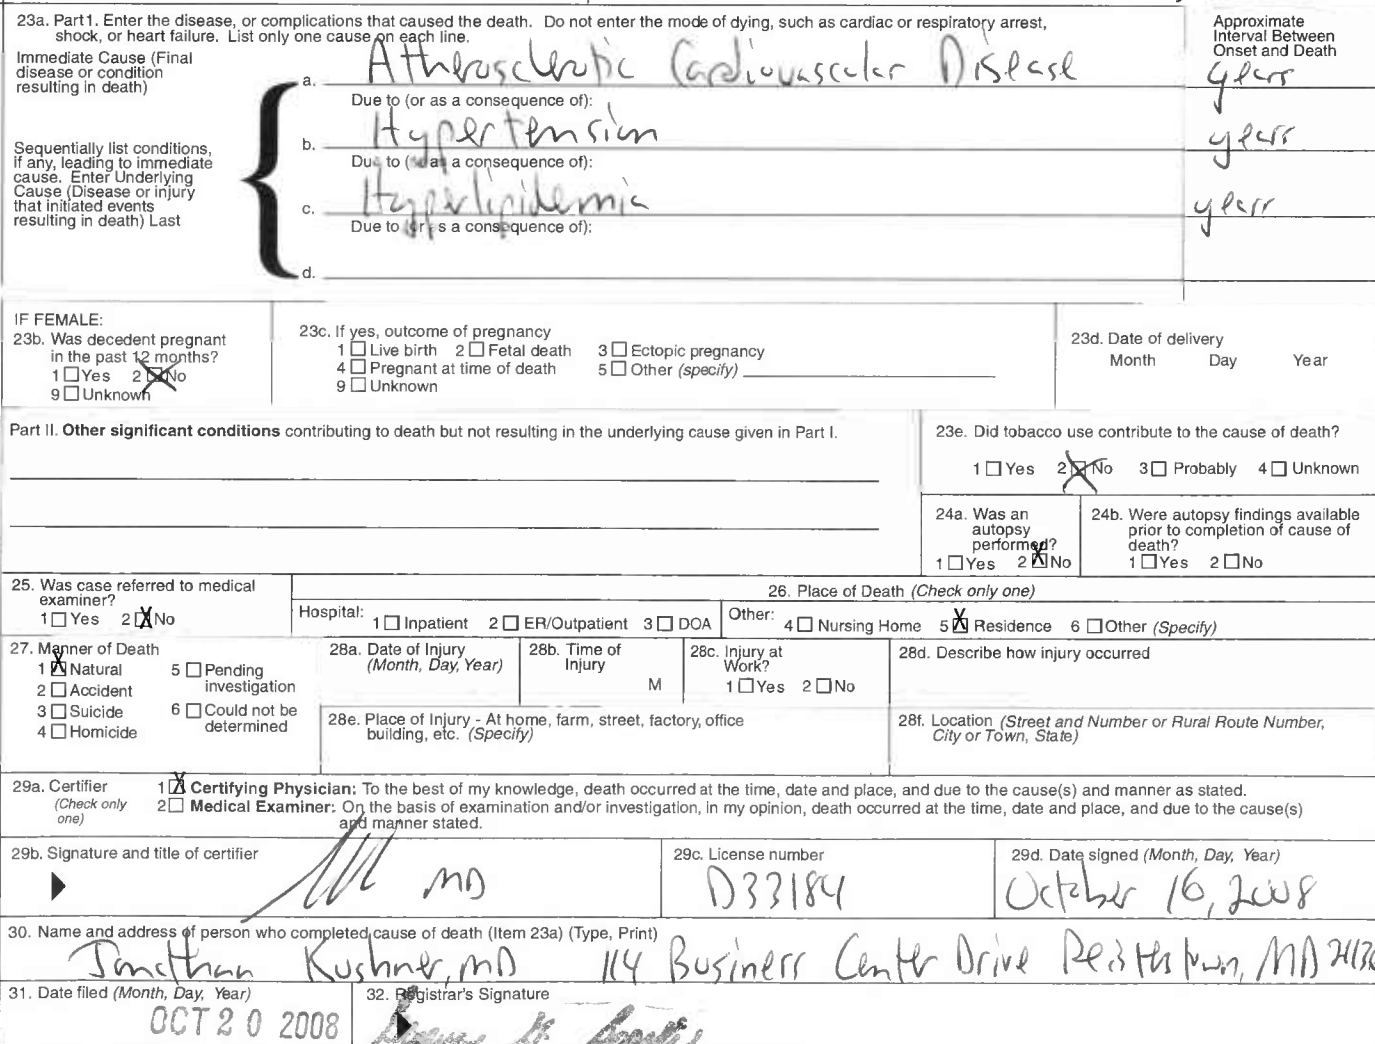 23a. Part1. Enter the disease, or complications that caused the death. Do not enter the mode of dying, such as cardiac or respiratory arrest,
shock, or heart failure. List only one cause on each line.
Approximate
Interval Between
Onset and Death
Immediate Cause (Final
disease or condition
resulting in death)
a. Atherosclerotic Cardiovascular Disease years
Due to (or as a consequence of):
b. Hypertension years
Due to (or as a consequence of):
c. Hyperlipidemia years
Due to (or as a consequence of):
d.
Sequentially list conditions,
if any, leading to immediate
cause. Enter Underlying
Cause (Disease or injury
that initiated events
resulting in death) Last
IF FEMALE:
23b. Was decedent pregnant
in the past 12 months?
1 Yes 2 No
9 Unknown
23c. If yes, outcome of pregnancy
1 Live birth 2 Fetal death 3 Ectopic pregnancy
4 Pregnant at time of death 5 Other (specify)
9 Unknown
23d. Date of delivery
Month Day Year
Part II. Other significant conditions contributing to death but not resulting in the underlying cause given in Part I.
23e. Did tobacco use contribute to the cause of death?
1 Yes 2 No 3 Probably 4 Unknown
24a. Was an
autopsy
performed?
1 Yes 2 No
24b. Were autopsy findings available
prior to completion of cause of
death?
1 Yes 2 No
25. Was case referred to medical
examiner?
1 Yes 2 No
26. Place of Death (Check only one)
Hospital: 1 Inpatient 2 ER/Outpatient 3 DOA
Other: 4 Nursing Home 5 Residence 6 Other (Specify)
27. Manner of Death
1 Natural 5 Pending
investigation
2 Accident
3 Suicide 6 Could not be
determined
4 Homicide
28a. Date of Injury
(Month, Day, Year)
28b. Time of
Injury
M
28c. Injury at
Work?
1 Yes 2 No
28d. Describe how injury occurred
28e. Place of Injury - At home, farm, street, factory, office
building, etc. (Specify)
28f. Location (Street and Number or Rural Route Number,
City or Town, State)
29a. Certifier
(Check only
one)
1 Certifying Physician: To the best of my knowledge, death occurred at the time, date and place, and due to the cause(s) and manner as stated.
2 Medical Examiner: On the basis of examination and/or investigation, in my opinion, death occurred at the time, date and place, and due to the cause(s)
and manner stated.
29b. Signature and title of certifier
MD
29c. License number
D33184
29d. Date signed (Month, Day, Year)
October 16, 2008
30. Name and address of person who completed cause of death (Item 23a) (Type, Print)
Jonathan Kushner, MD 114 Business Center Drive Reisterstown, MD 21136
31. Date filed (Month, Day, Year)
OCT 20 2008
32. Registrar's Signature